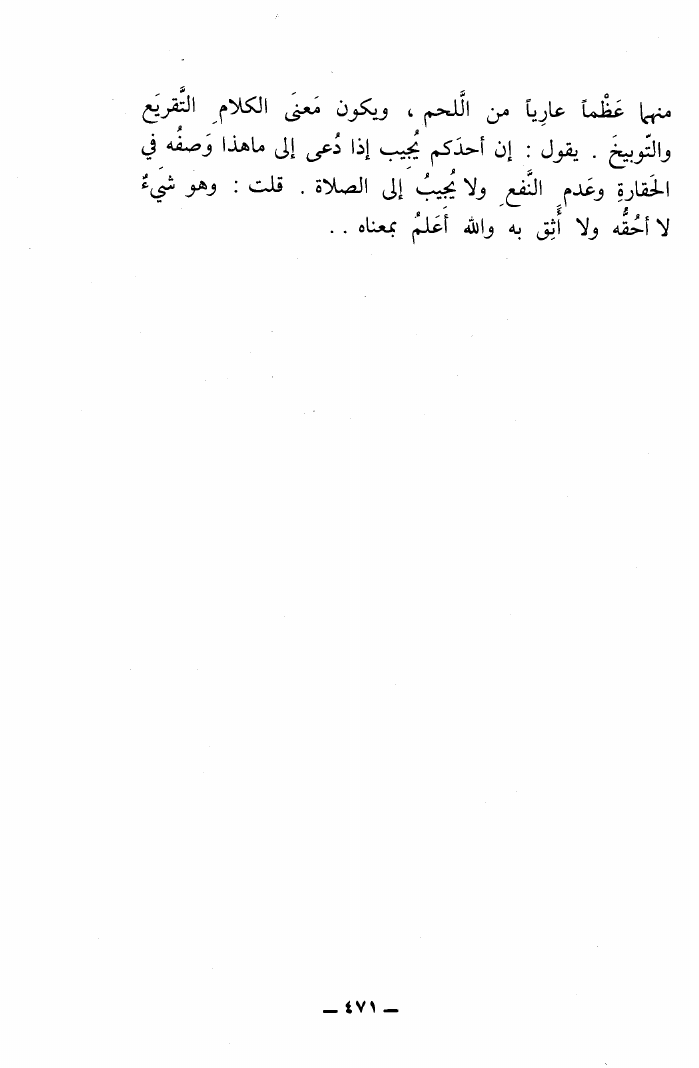 منهما عَظْماً عارِياً من اللَّحم ، ويكون مَعنَى الكلامِ التَّقريَع
والتَّوبيخَ . يقول : إن أحدَكم يُجِيب إذا دُعى إلى ماهذا وَصفُه في
الحَقارةِ وعَدمِ النَّفعِ ولا يُجِيبُ إلى الصلاة . قلت : وهو شيءٌ
لا أحُقُّه ولا أَثِق به والله أعَلمُ بمعناه . .
— ٤٧١ —